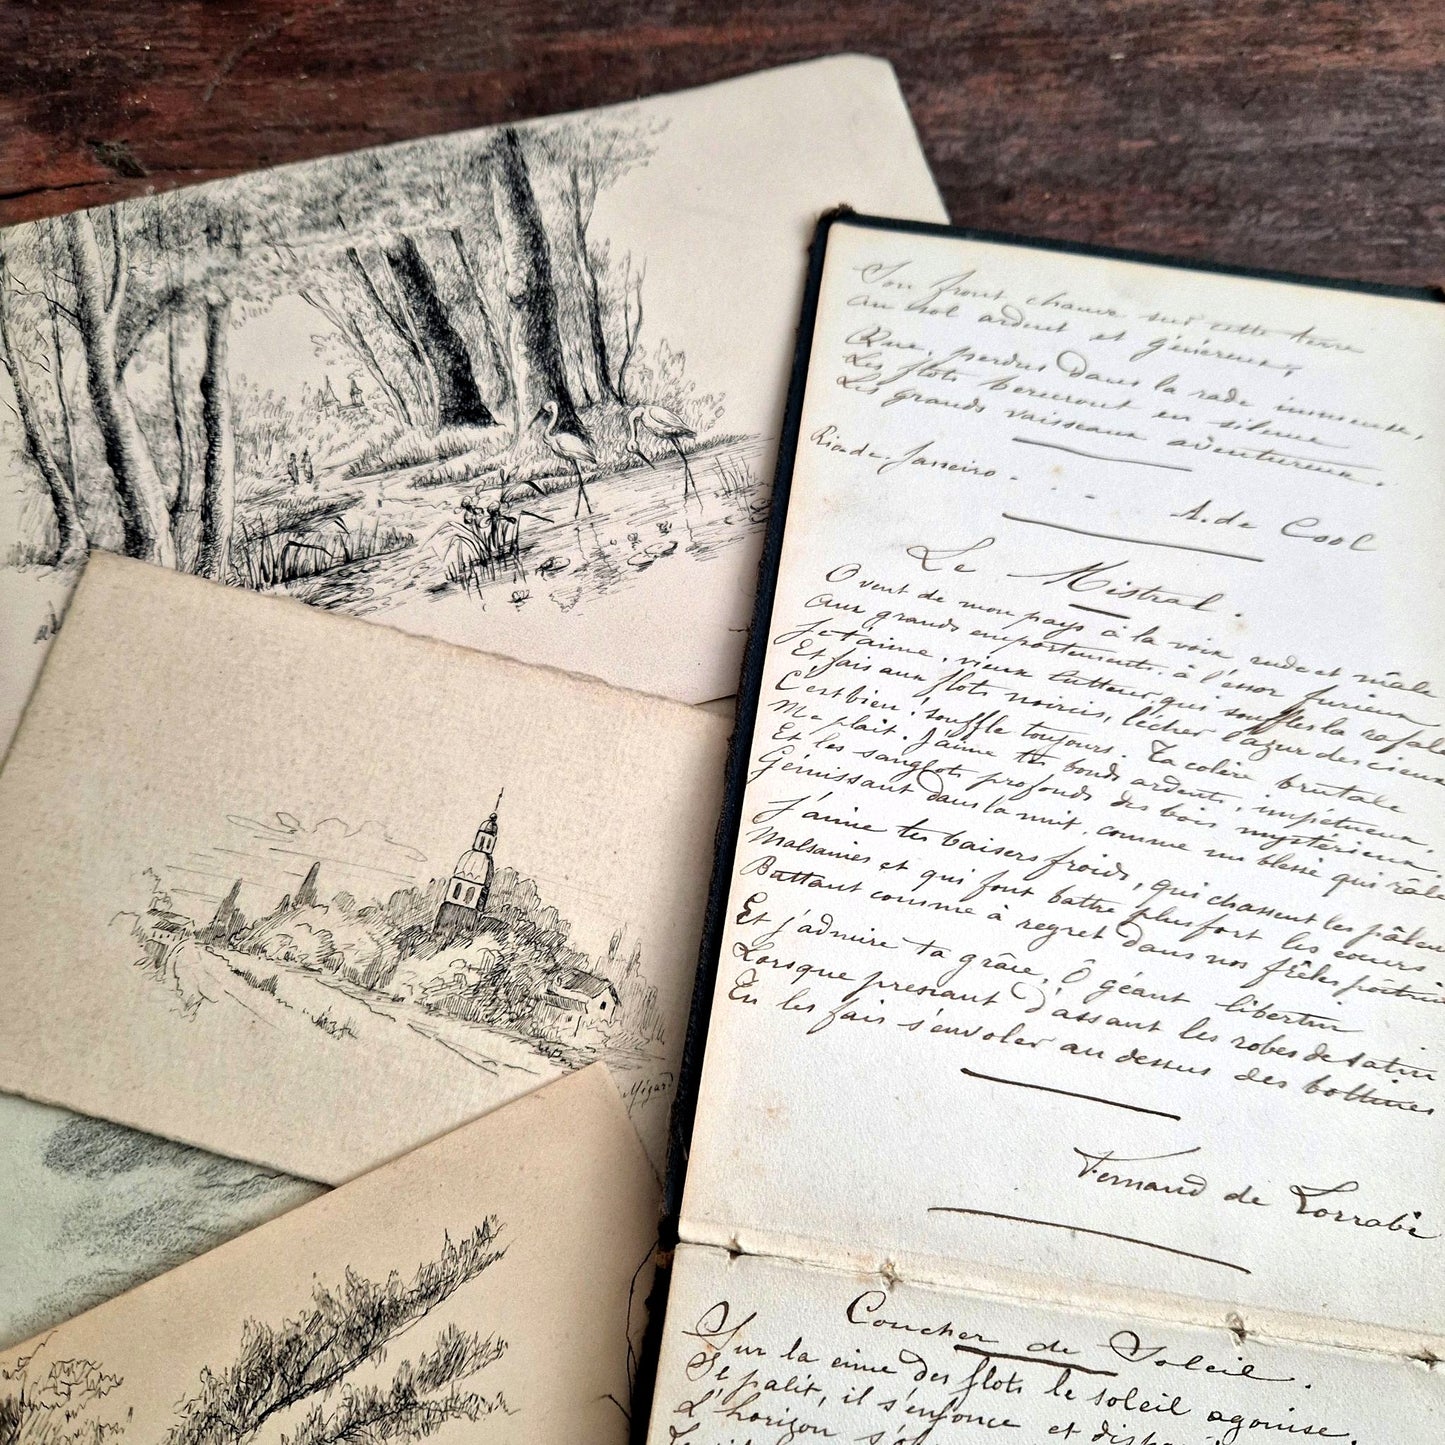 Son front chauve sur cette terre
Au sol ardent et généreux,
Que, perdus dans la rade immense,
Les flots berceront en silence
Les grands vaisseaux aventureux.
Rio de Janeiro . . .
A. de Cool
Le Mistral.
O vent de mon pays à la voix rude et mâle
Aux grands emportements, à l'essor furieux
Je t'aime, vieux lutteur, qui souffles la rafale
Et fais aux flots noircis, lécher l'azur des cieux
C'est bien! souffle toujours. Ta colère brutale
Me plait. J'aime tes bonds ardents, impétueux,
Et les sanglots profonds des bois mystérieux
Gémissant dans la nuit, comme un blessé qui râle
J'aime tes baisers froids, qui chassent les pâleurs
Malsaines et qui font battre plus fort les coeurs
Battant comme à regret dans nos frêles poitrines
Et j'admire ta grâce, Ô géant libertin
Lorsque prenant d'assaut les robes de satin
Tu les fais s'envoler au dessus des bottines
Fernand de Lorrabi
Coucher de Soleil.
Sur la cime des flots le soleil agonise.
Il palit, il s'enfonce et
L'horizon
Mégard